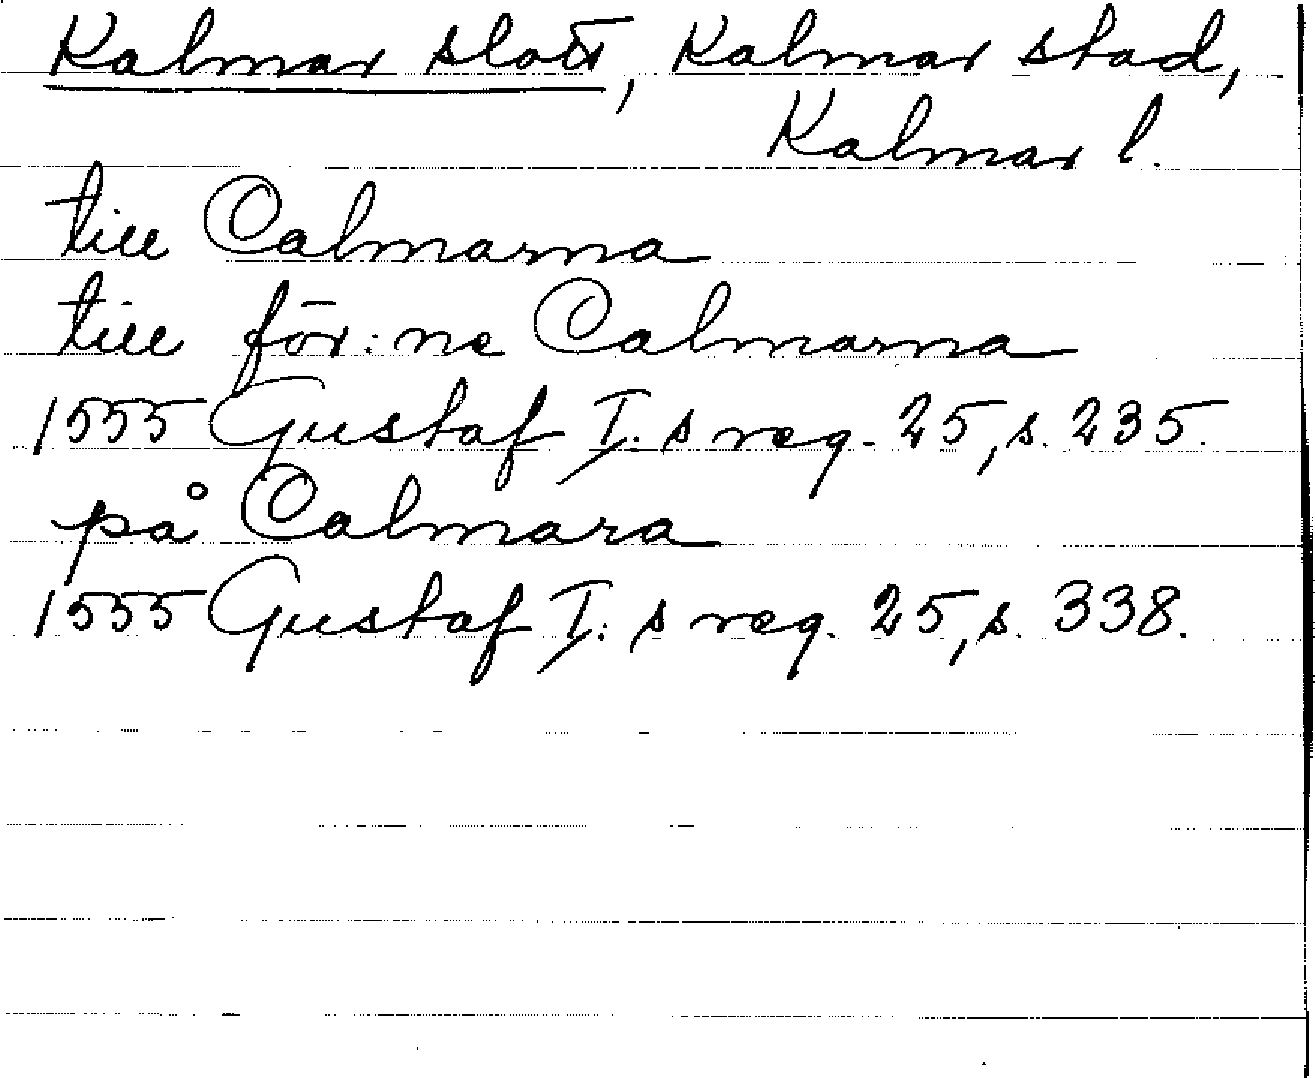 Kalmar slott, Kalmar stad,
Kalmar l.
till Calmarna
till för:ne Calmarna
1555 Gustaf I:s reg. 25, s. 235.
på Calmara
1555 Gustaf I:s reg. 25, s. 338.